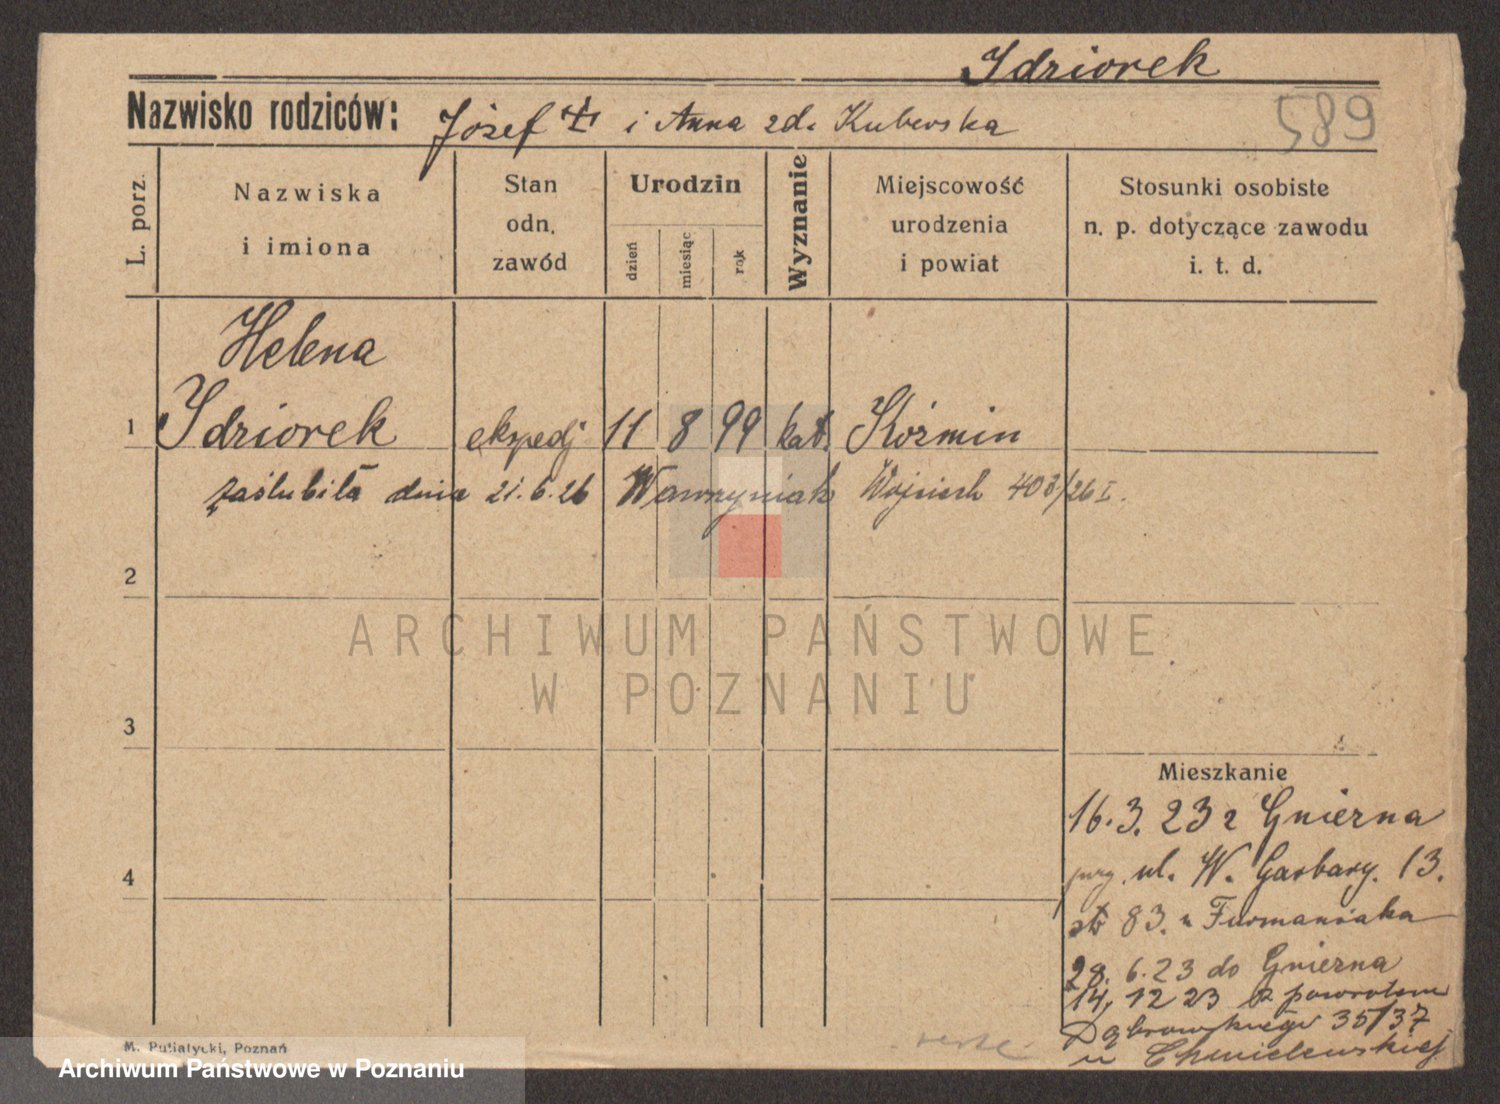 Idziorek
Nazwisko rodziców: Józef i Anna zd. Kuberska
589
L. porz.
Nazwiska
i imiona
Stan
odn.
zawód
Urodzin
dzień
miesiąc
rok
Wyznanie
Miejscowość
urodzenia
i powiat
Stosunki osobiste
n. p. dotyczące zawodu
i. t. d.
Helena
1 Idziorek ekspedj 11 8 99 kat. Koźmin
zaślubiła dnia 21.6.26 Wawrzyniak Wojciech 403/26 I.
2
ARCHIWUM PAŃSTWOWE
W POZNANIU
3
Mieszkanie
16.3.23 z Gniezna
4
przy. ul. W. Garbary. 13.
st 83. u Furmaniaka
28.6.23 do Gniezna
14, 12 23 z powrotem
Dąbrowskiego 35/37
u Chmielewskiej
M. Putiatycki, Poznań
Archiwum Państwowe w Poznaniu